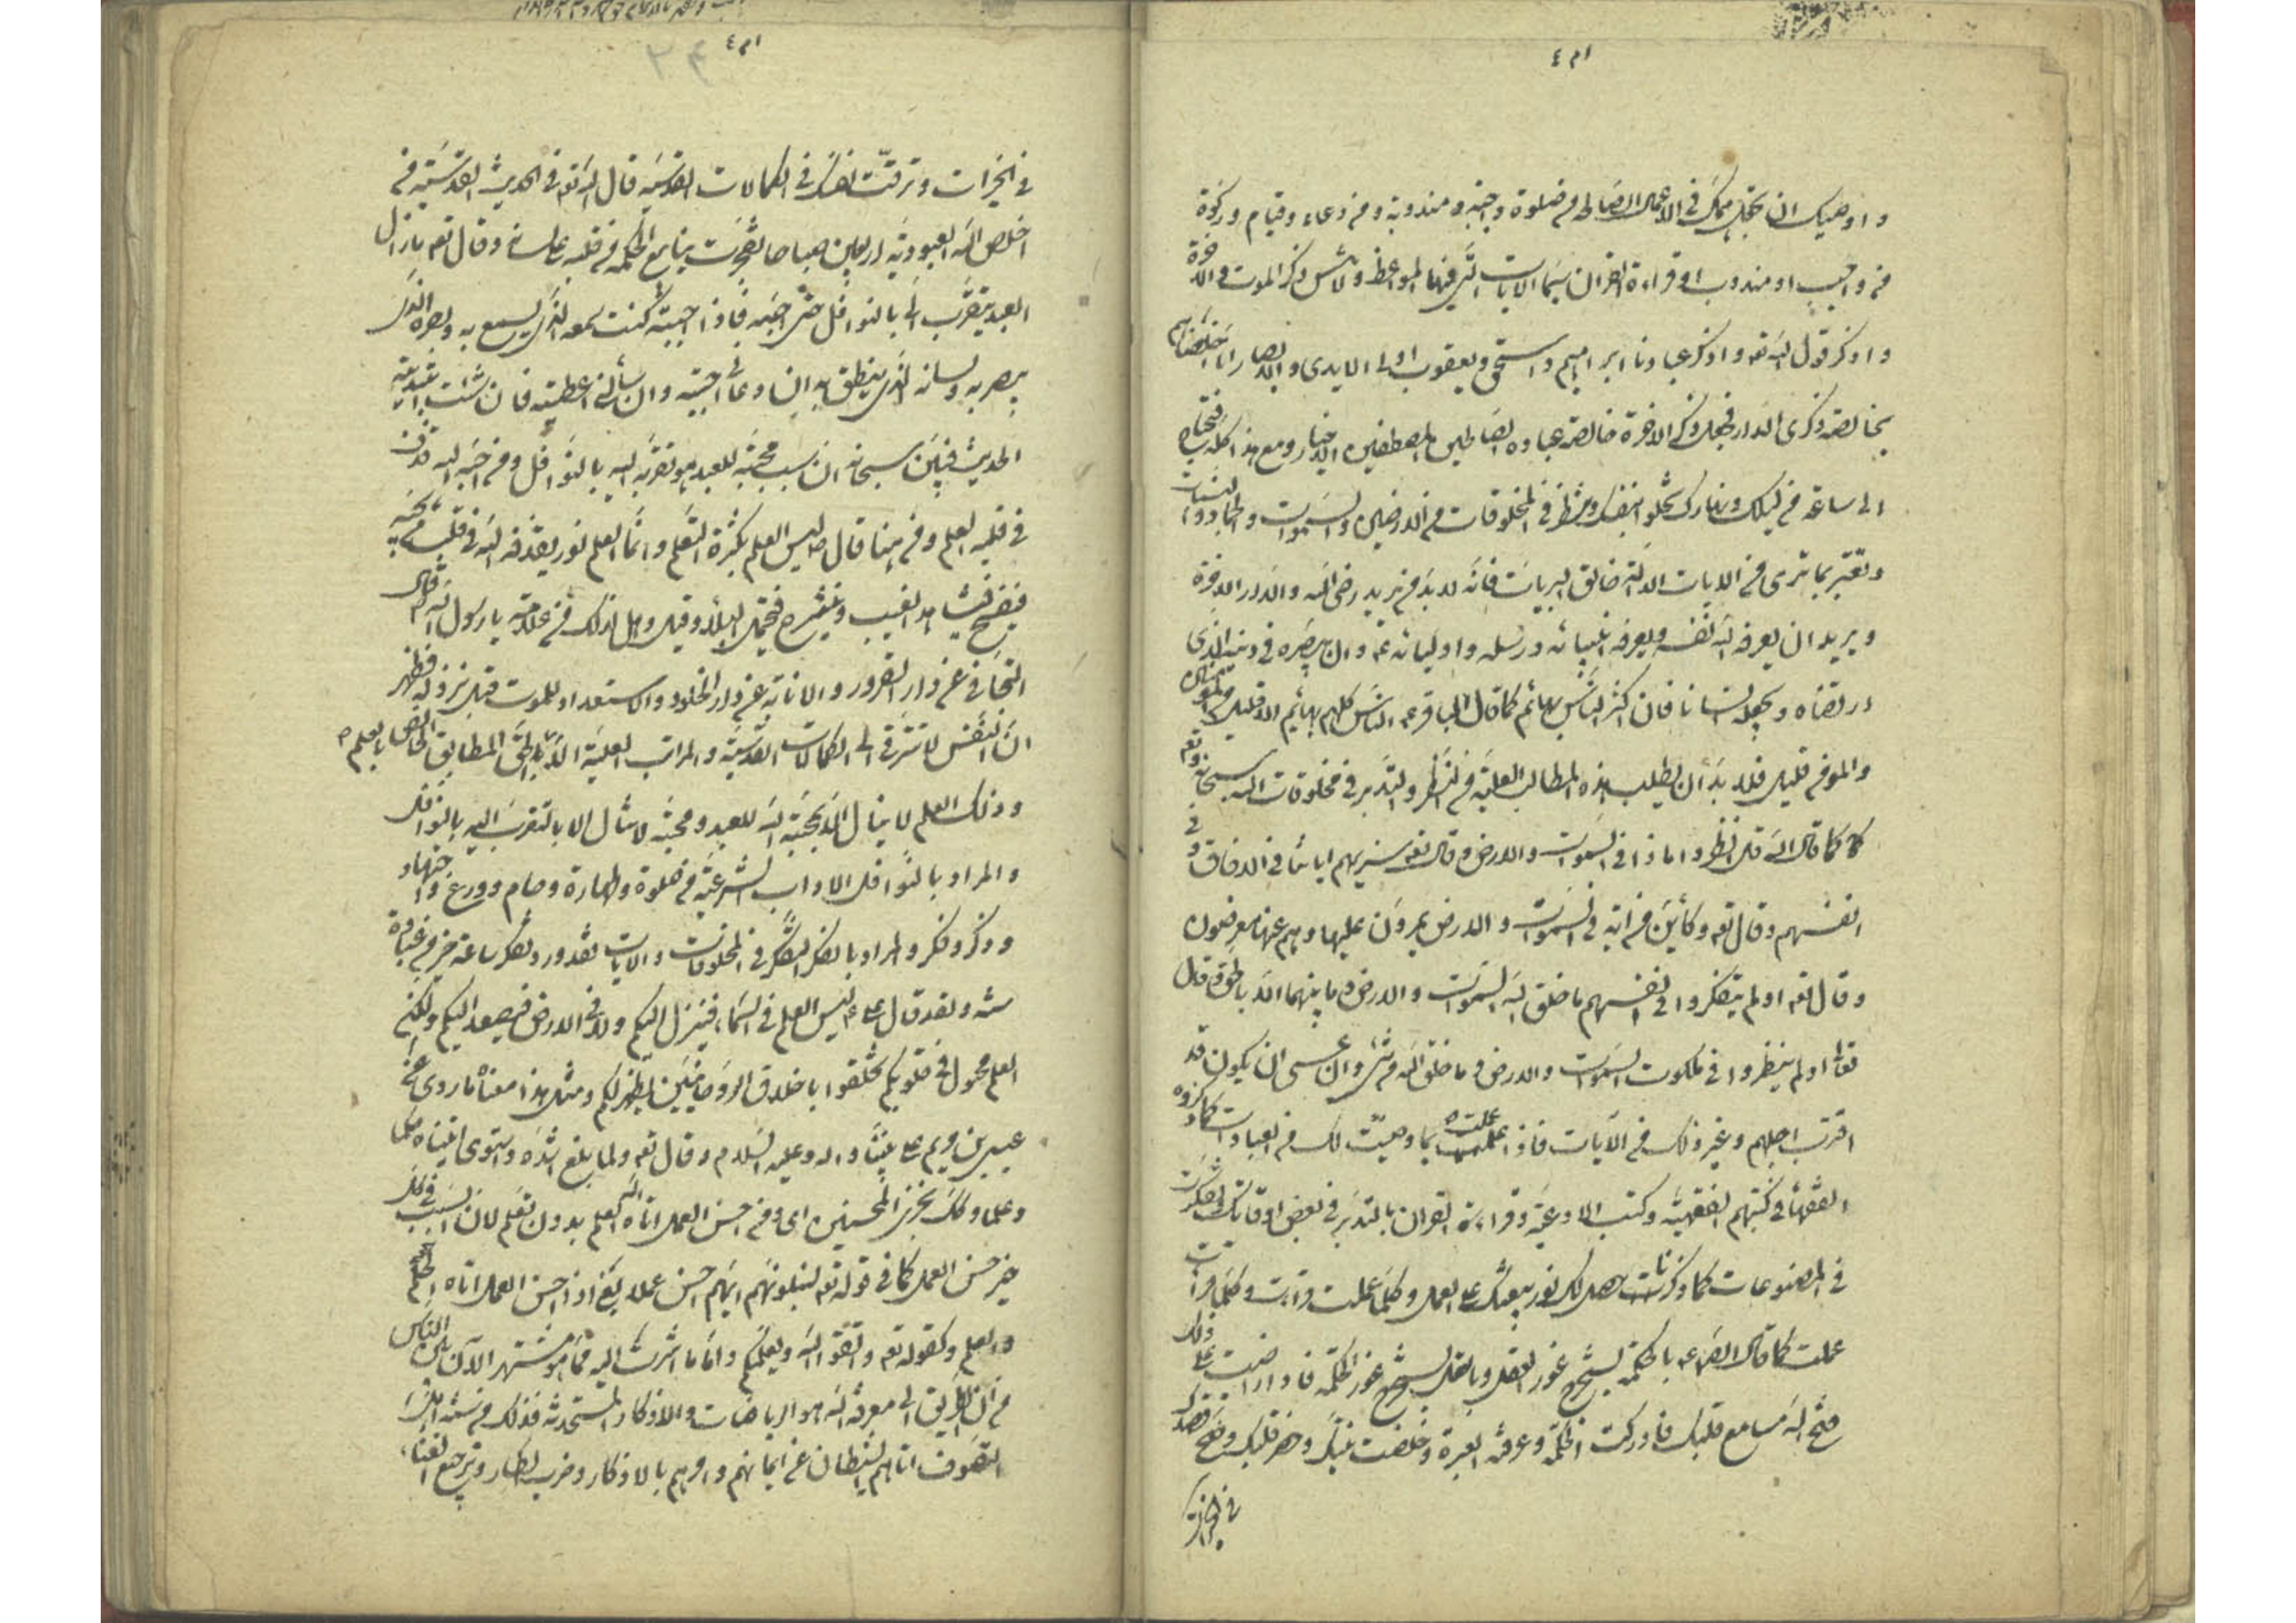 واوصيك ان تجعل همّك فى الاعمال الصالحة من صلوة واجبة ومندوبة ومن دعاء وقيام وزكوة
من واجب او مندوب او قراءة القرآن سيّما الآيات التى فيها المواعظ ولا تنس ذكر الموت والآخرة
واذكر قول الله تعه واذكر عبادنا ابراهيم واسحق ويعقوب اولى الايدى والابصار انا اخلصناهم
بخالصة ذكرى الدار فجعل ذكر الاخرة خالصة عباده الصالحين المصطفين الاخيار ومع هذا كله تحتاج
الى ساعة من ليلك ونهارك تخلو بنفسك وتنظر فى المخلوقات من الارضين والسموات والجمادات والنباتات
وتعتبر بما ترى من الايات الدالة خالق البريات فانّه لا بد من يريد رضى الله والدار الاخرة
ويريد ان يعرفه الله نفسه ويعرفه انبيائه ورسله واوليائه ع وان يبصّره فى دينه الذى
ارتضاه ويجعله انسانا فان اكثر الناس بهائم كما قال الباقر ع الناس كلهم بهائم الا قليل من المؤمنين
والمؤمن قليل فلا بدّ أن يطلب هذه المطالب العلية من النظر والتدبر فى مخلوقات الله سبحانه وتعه
كما قال الله قل انظروا ماذا فى السموات والارض وقال تعه سنريهم اياتنا فى الافاق وفى
انفسهم وقال تعه وكأيّن من اية فى السموات والارض يمرون عليها وهم عنها معرضون
وقال تعه اولم يتفكروا فى انفسهم ما خلق الله السموات والارض وما بينهما الّا بالحق وقال
تعالى اولم ينظروا فى ملكوت السموات والارض وما خلق الله من شئ وان عسى ان يكون قد
اقترب اجلهم وغير ذلك من الآيات فاذا عملت بما وصيت لك من العبادات كما ذكروه
الفقهاء فى كتبهم الفقهيّة وكتب الادعية وقراءة القران بالتدبر فى بعض اوقاتك وتفكّرت
فى المصنوعات كما ذكرنا حصل لك نور يبعثك على العمل وكلما عملت قرأت وكلما قرأت
عملت كما قال الصه ع بالحكمة يستخرج غور العقل وبالعقل يستخرج غور الحكمة فاذا دمت على ذلك
فتح الله مسامع قلبك فادركت الحكمة وعرفت العبرة وخلصت نيتك وحضر قلبك وصح قصدك
فى الخيرات
فى الخيرات وترقّت نفسك فى الكمالات القدسية قال الله تعه فى الحديث القدسى من
اخلص لله العبودية اربعين صباحا تفجّرت ينابيع الحكمة من قلبه على لسانه وقال تعه ما زال
العبد يتقرّب الىّ بالنوافل حتى احبّه فاذا احببته كنت سمعه الذى يسمع به وبصره الذى
يبصر به ولسانه الذى ينطق به ان دعانى اجبته وان سألنى اعطيته فان سكت ابتدئته
الحديث فبيّن سبحانه ان سبب محبته للعبد هو تقربه اليه بالنوافل ومن احبّه الله قذف
فى قلبه العلم ومن هنا قال ص ليس العلم بكثرة التعلم وانّما العلم نور يقذفه الله فى قلب من يحبّه
فينفسح فيشاهد الغيب وينشرح فيحتمل البلاء وقيل وهل لذلك من علامة يا رسول الله قال
التجافى عن دار الغرور والانابة الى دار الخلود والاستعداد للموت قبل نزوله فظهر
انّ النفس لا تترقى الى الكمالات القدسيّة والمراتب العليّة الّا بالحق المطابق الخاص بالعلم
وذلك العلم لا ينال الّا بمحبّة الله للعبد ومحبّته لا تنال الا بالتقرب اليه بالنوافل
والمراد بالنوافل الاداب الشرعيّة من صلوة وطهارة وصيام وورع واجتهاد
وذكر وفكر والمراد بالفكر التفكّر فى المخلوقات والايات تقدور وتفكر ساعة خير من عبادة
سنة ولقد قال على ع ليس العلم فى السماء فينزل اليكم ولا فى الارض فيصعد اليكم ولكن
العلم مجبول فى قلوبكم تخلقوا باخلاق الروحانيين يظهر لكم ومثل هذا معناه ما روى عن
عيسى بن مريم على نبينا واله وعليه السلام وقال تعه ولما بلغ اشدّه واستوى اتيناه حكما
وعلما وكذلك نجزى المحسنين اى ومن احسن العمل اتاه الله العلم بدون تعلم لان السبب فى ذلك
حسن العمل كما فى قوله تعه لنبلونهم ايّهم احسن عملا يعنى اذا احسن العمل اتاه الحكم
والعلم وكقوله تعه واتقوا الله ويعلّمكم واما ما اشرت اليه ممّا هو مشتهر الآن بين الناس
من انّ الطريق الى معرفة الله هو الرياضات والاذكار المستحدثة فذلك من سنّة اهل
التصوف اتاهم الشيطان عن ايمانهم وامرهم بالاذكار وضرب الطار وترجيع الغناء